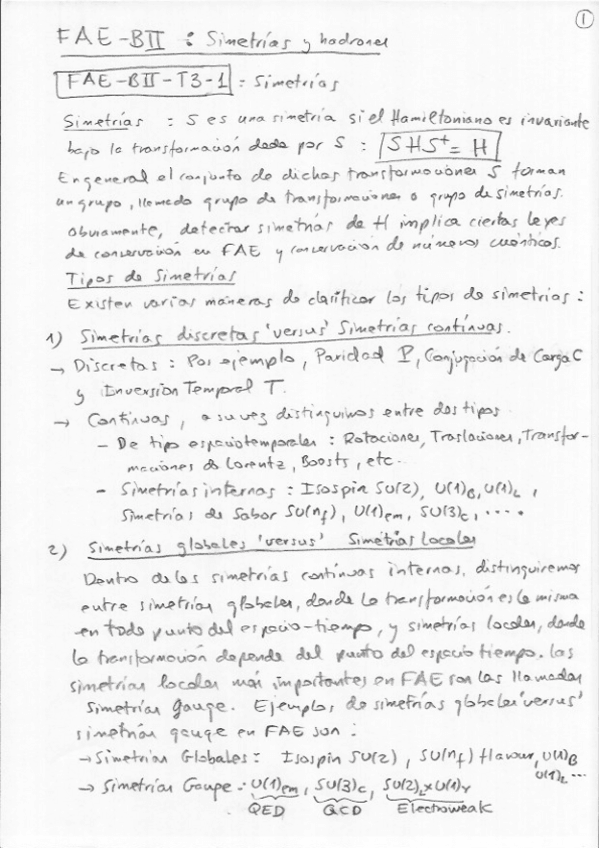 1
FAE-BII : Simetrías y hadrones
FAE-BII-T3-1 : Simetrías
Simetrías : S es una simetría si el Hamiltoniano es invariante
bajo la transformación dada por S : SHS⁺ = H
En general el conjunto de dichas transformaciones S forman
un grupo, llamado grupo de transformaciones o grupo de simetrías.
Obviamente, detectar simetrías de H implica ciertas leyes
de conservación en FAE y conservación de números cuánticos.
Tipos de Simetrías
Existen varias maneras de clasificar los tipos de simetrías :
1) Simetrías discretas 'versus' Simetrías contínuas.
→ Discretas : Por ejemplo, Paridad P, Conjugación de Carga C
y Inversión Temporal T.
→ Contínuas, a su vez distinguimos entre dos tipos
- De tipo espaciotemporales : Rotaciones, Traslaciones, Transfor-
maciones de Lorentz, Boosts, etc..
- Simetrías internas : Isospin SU(2), U(1)B, U(1)L,
Simetrías de Sabor SU(nf), U(1)em, SU(3)c, ....
2) Simetrías globales 'versus' Simetrías Locales
Dentro de las simetrías contínuas internas, distinguiremos
entre simetrías globales, donde la transformación es la misma
en todo punto del espacio-tiempo, y simetrías locales, donde
la transformación depende del punto del espacio tiempo. Las
simetrías locales más importantes en FAE son las llamadas
Simetrías Gauge. Ejemplos de simetrías globales 'versus'
simetrías gauge en FAE son :
→ Simetrías Globales : Isospin SU(2), SU(nf) flavour, U(1)B
U(1)L ...
→ Simetrías Gauge : U(1)em, SU(3)c, SU(2)L×U(1)Y
QED QCD Electroweak